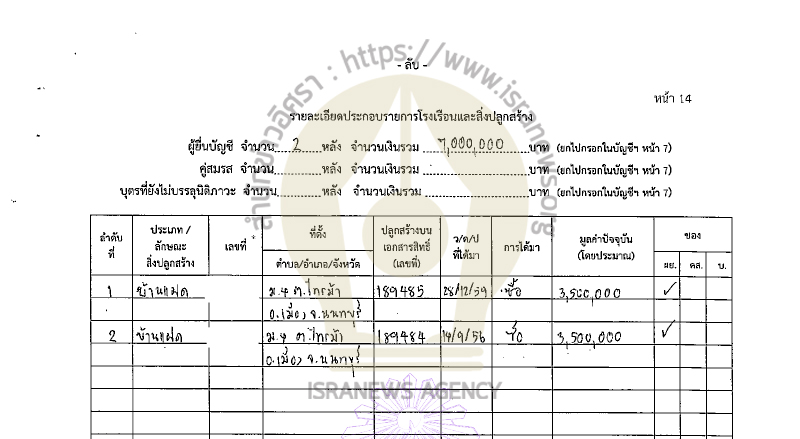 - ลับ -
หน้า 14
รายละเอียดประกอบรายการโรงเรือนและสิ่งปลูกสร้าง
ผู้ยื่นบัญชี จำนวน 2 หลัง จำนวนเงินรวม 7,000,000 บาท (ยกไปกรอกในบัญชีฯ หน้า 7)
คู่สมรส จำนวน หลัง จำนวนเงินรวม บาท (ยกไปกรอกในบัญชีฯ หน้า 7)
บุตรที่ยังไม่บรรลุนิติภาวะ จำนวน หลัง จำนวนเงินรวม บาท (ยกไปกรอกในบัญชีฯ หน้า 7)
ลำดับที่ ประเภท / ลักษณะสิ่งปลูกสร้าง เลขที่ ที่ตั้ง ตำบล/อำเภอ/จังหวัด ปลูกสร้างบนเอกสารสิทธิ์ (เลขที่) ว/ด/ป ที่ได้มา การได้มา มูลค่าปัจจุบัน (โดยประมาณ) ของ ผย. คส. บ.
1 บ้านแฝด ม.4 ต.ไทรม้า 189485 28/12/59 ซื้อ 3,500,000 ✓
อ.เมือง จ.นนทบุรี
2 บ้านแฝด ม.4 ต.ไทรม้า 189484 19/9/56 ซื้อ 3,500,000 ✓
อ.เมือง จ.นนทบุรี
สำนักข่าวอิศรา : https://www.isranews.org
ISRANEWS AGENCY